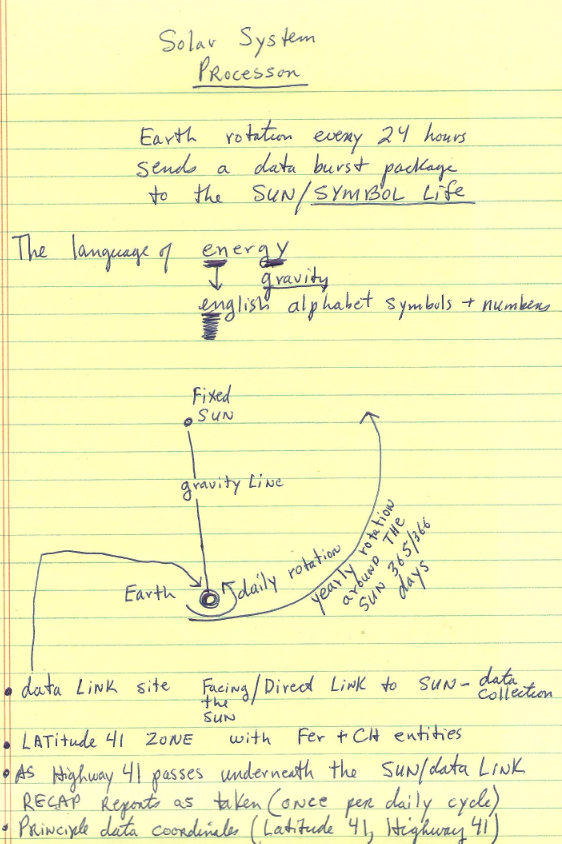 Solar System
Processon
Earth rotation every 24 hours
sends a data burst package
to the SUN/SYMBOL Life
The language of energy
gravity
english alphabet symbols + numbers
Fixed
SUN
gravity Line
Earth
daily rotation
yearly rotation
around THE
SUN 365/366
days
• data LINK site Facing/Direct Link to SUN - data
the collection
SUN
• LATitude 41 ZONE with Fer + CH entities
• AS Highway 41 passes underneath the SUN/data LINK
RECAP Reports as taken (once per daily cycle)
• Principle data coordinates (Latitude 41, Highway 41)